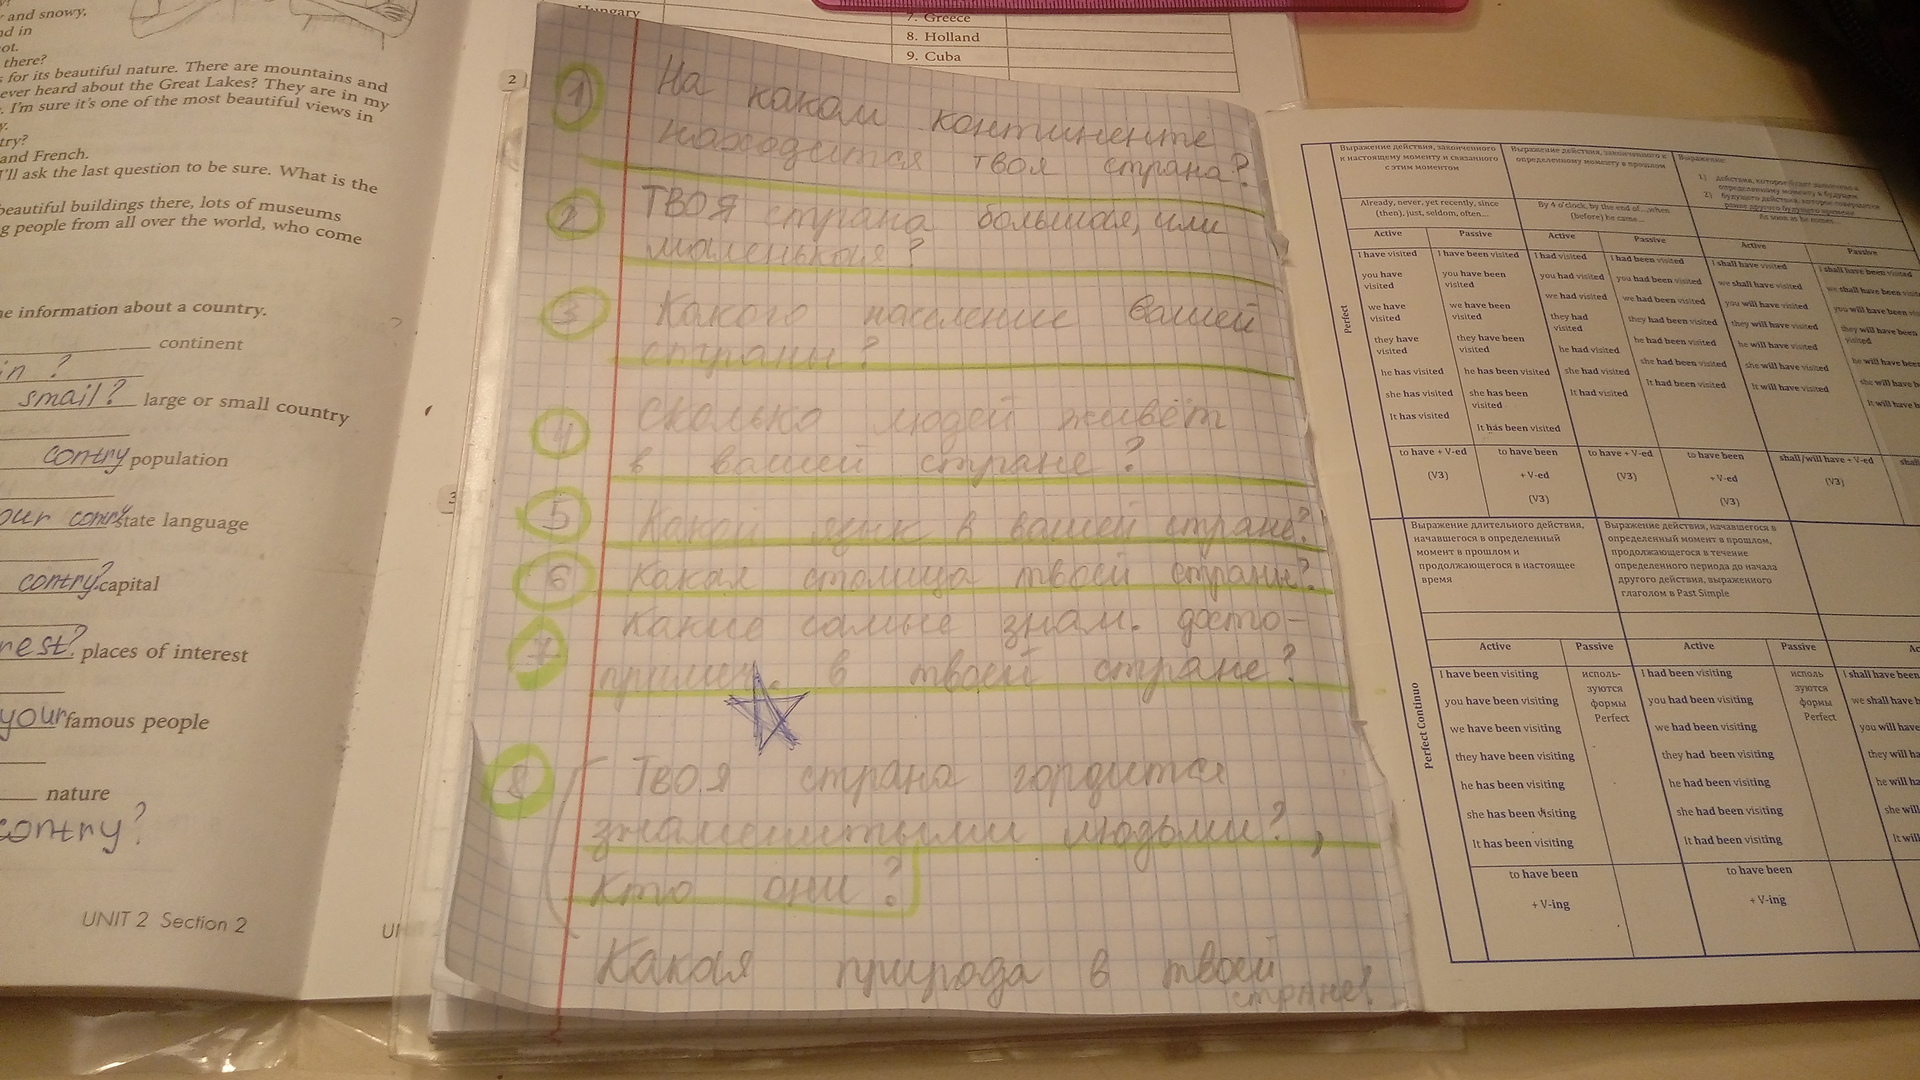 and snowy,
nd in
ot.
there?
for its beautiful nature. There are mountains and
ever heard about the Great Lakes? They are in my
I'm sure it's one of the most beautiful views in
y.
try?
and French.
I'll ask the last question to be sure. What is the
beautiful buildings there, lots of museums
g people from all over the world, who come
he information about a country.
continent
in ?
smail? large or small country
contry population
our contry state language
contry? capital
rest? places of interest
your famous people
nature
contry?
UNIT 2 Section 2
2
3
Hungary
7. Greece
8. Holland
9. Cuba
1) На каком континенте
находится твоя страна?
2 ТВОЯ страна большая, или
маленькая?
3 Какого население вашей
страны?
4 Сколько людей живёт
в вашей стране?
5 Какой язык в вашей стране?
6 Какая столица твоей страны?
7 Какие самые знам. досто-
примеч. в твоей стране?
8 Твоя страна гордится
знаменитыми людьми?,
Кто они?
Какая природа в твоей
стране?
Выражение действия, законченного
к настоящему моменту и связанного
с этим моментом
Выражение действия, законченного к
определенному моменту в прошлом
Выражение:
1) действия, которое будет закончено к
определенному моменту в будущем
2) будущего действия, которое совершится
ранее другого будущего времени
Already, never, yet recently, since
(then), just, seldom, often...
By 4 o'clock, by the end of..., when
(before) he came...
As soon as he comes
Active Passive Active Passive Active Passive
Perfect
I have visited I have been visited I had visited I had been visited I shall have visited I shall have been visited
you have visited you have been visited you had visited you had been visited we shall have visited we shall have been visited
we have visited we have been visited we had visited we had been visited you will have visited you will have been visited
they have visited they have been visited they had visited they had been visited they will have visited they will have been visited
he has visited he has been visited he had visited he had been visited he will have visited he will have been
she has visited she has been visited she had visited she had been visited she will have visited she will have
It has visited It has been visited It had visited It had been visited It will have visited It will have b
to have + V-ed (V3) to have been + V-ed (V3) to have + V-ed (V3) to have been + V-ed (V3) shall/will have + V-ed (V3) shal
Выражение длительного действия,
начавшегося в определенный
момент в прошлом и
продолжающегося в настоящее
время
Выражение действия, начавшегося в
определенный момент в прошлом,
продолжающегося в течение
определенного периода до начала
другого действия, выраженного
глаголом в Past Simple
Active Passive Active Passive Ac
Perfect Continuo
I have been visiting исполь- I had been visiting исполь I shall have been
you have been visiting зуются you had been visiting зуются we shall have b
we have been visiting формы we had been visiting формы you will have
they have been visiting Perfect they had been visiting Perfect they will ha
he has been visiting he had been visiting he will ha
she has been visiting she had been visiting she will
It has been visiting It had been visiting It will
to have been to have been
+ V-ing + V-ing